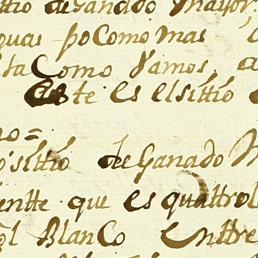 ttio de Ganado Mayor
guas po Como mas
ta Como Vamos a
este es el sittio
no=
sittio de Ganado M
entte que es quattrol
ol Blanco enttre